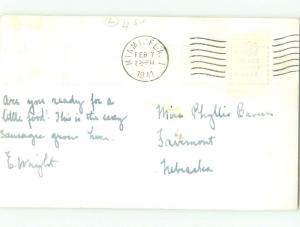 4 50
MIAMI, FLA.
FEB 7
1941
Are you ready for a
little food. This is the way
sausages grow here.
E. Wright
Miss Phyllis Brown
Fairmont
Nebraska